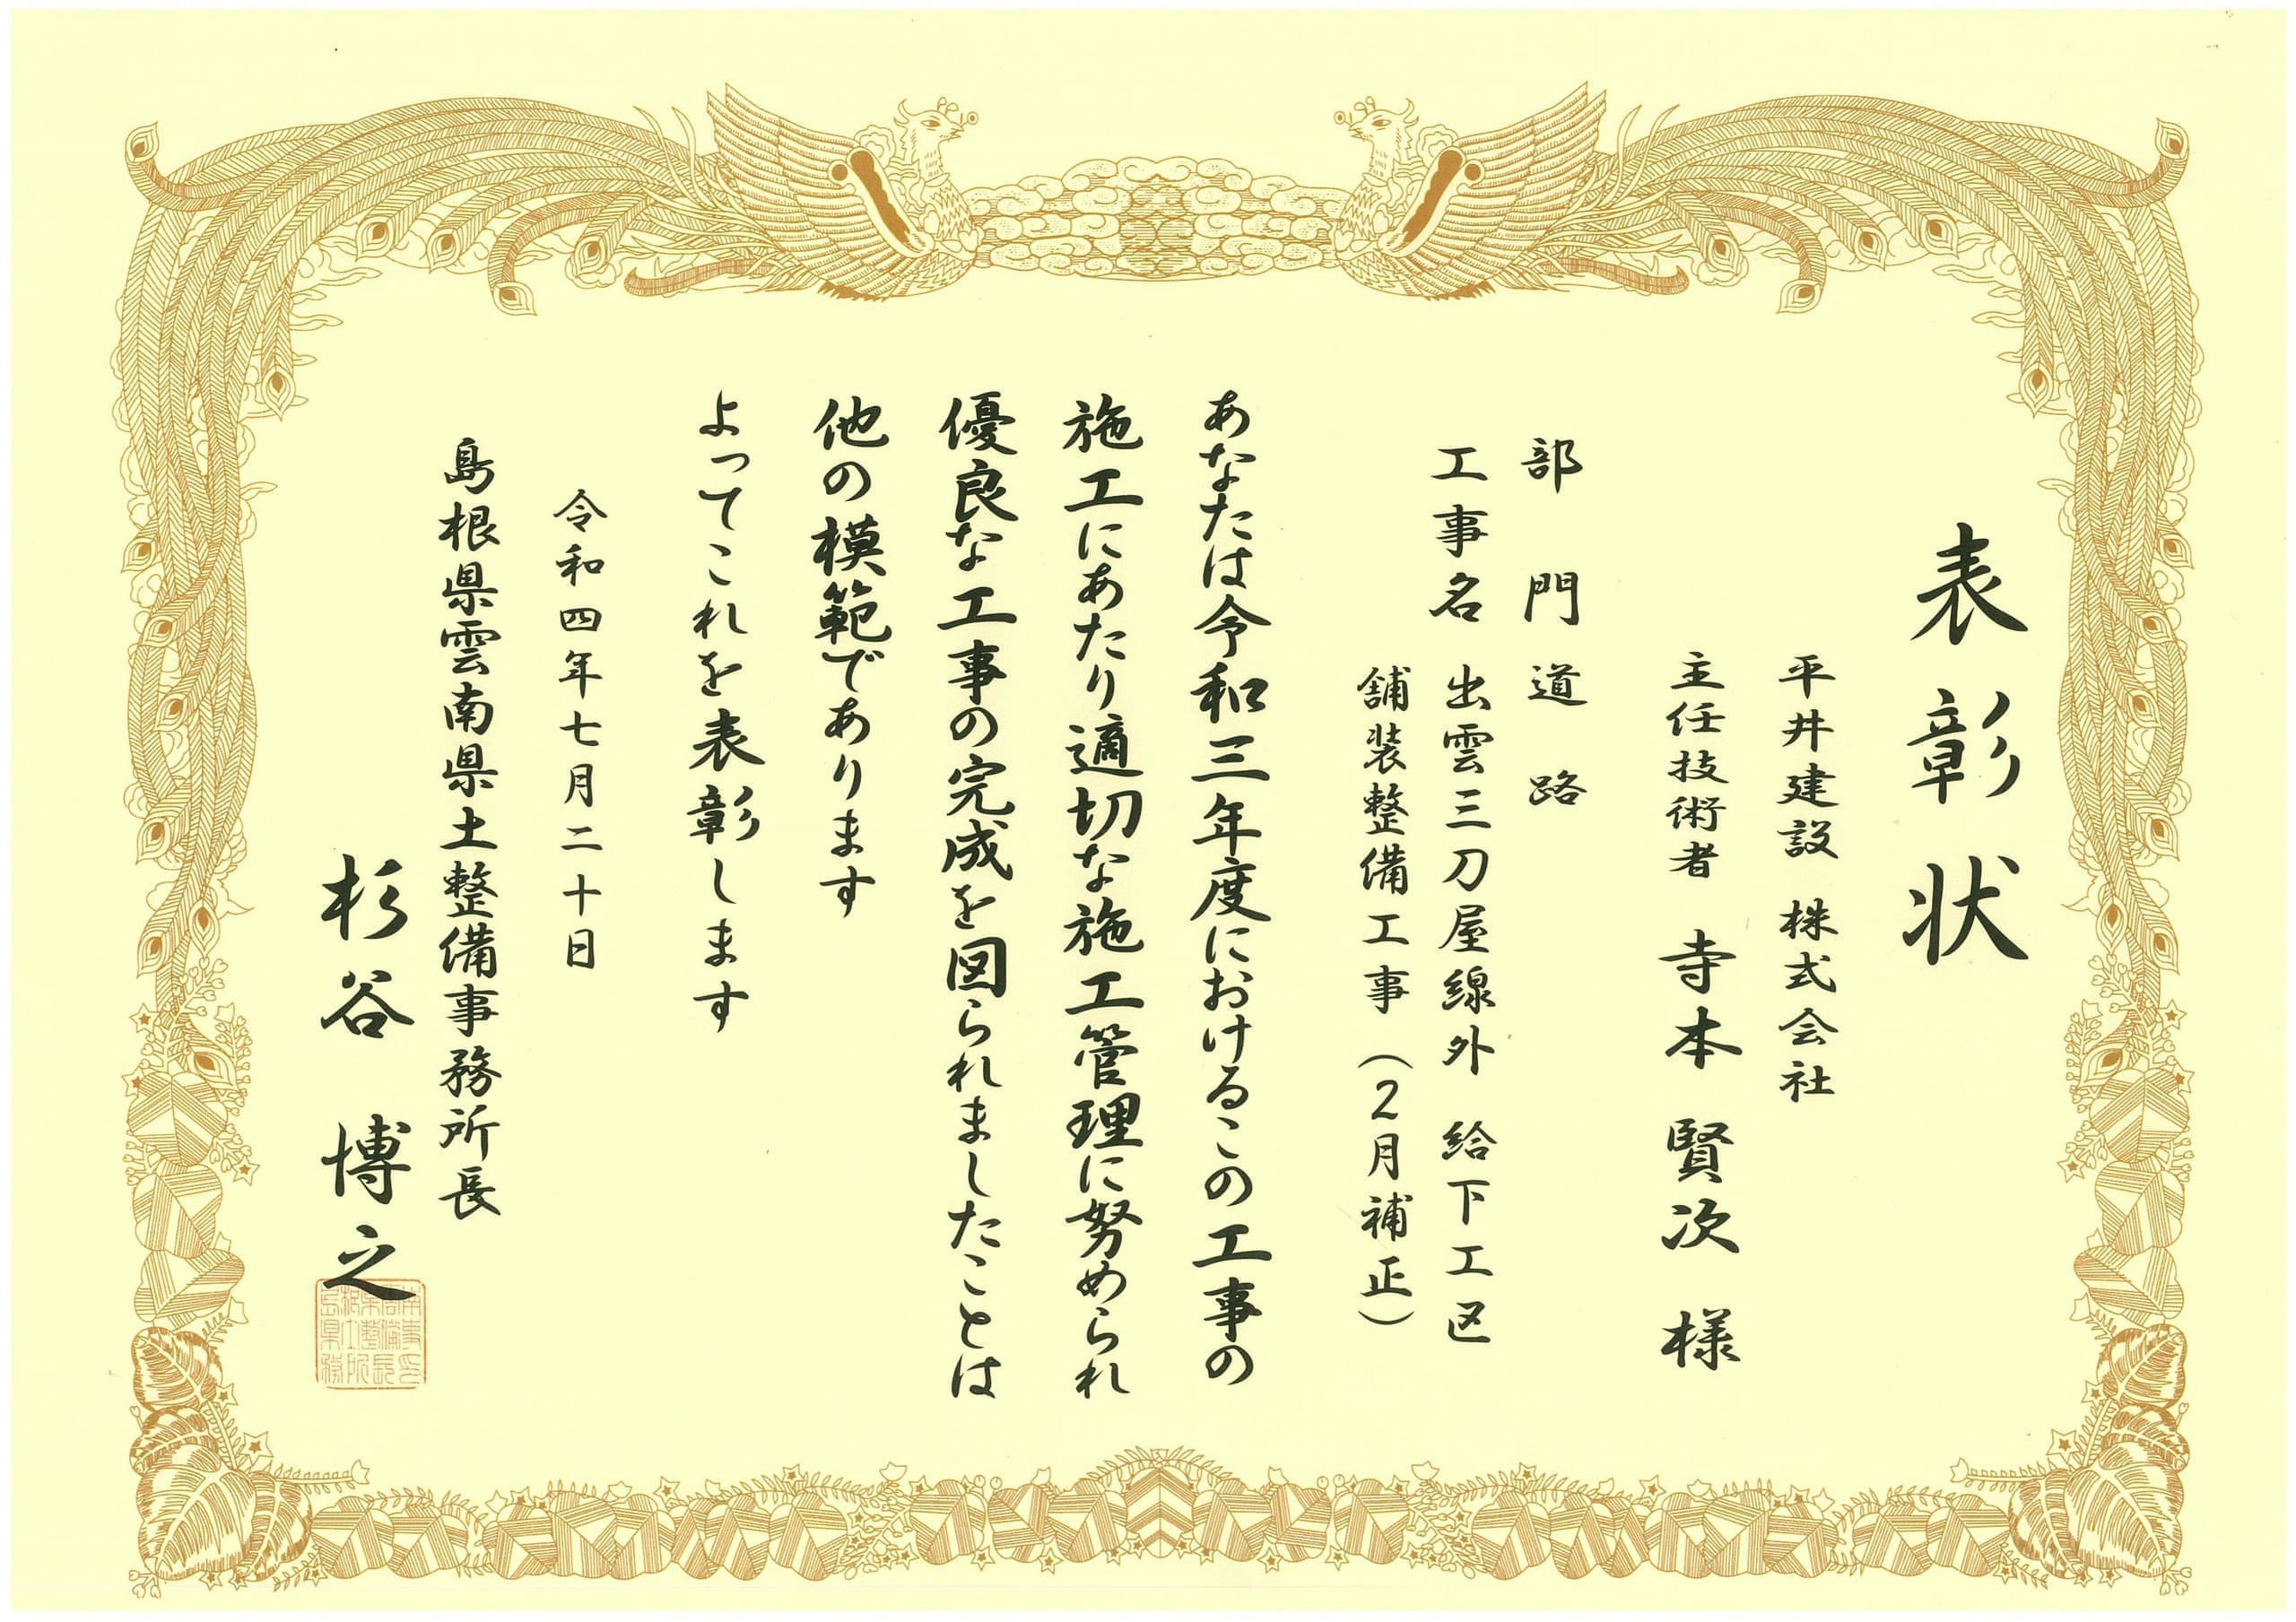 表彰状
平井建設 株式会社
主任技術者 寺本 賢次 様
部門 道路
工事名 出雲三刀屋線外 給下工区
舗装整備工事（2月補正）
あなたは令和三年度におけるこの工事の
施工にあたり適切な施工管理に努められ
優良な工事の完成を図られましたことは
他の模範であります
よってこれを表彰します
令和四年七月二十日
島根県雲南県土整備事務所長
杉谷 博之